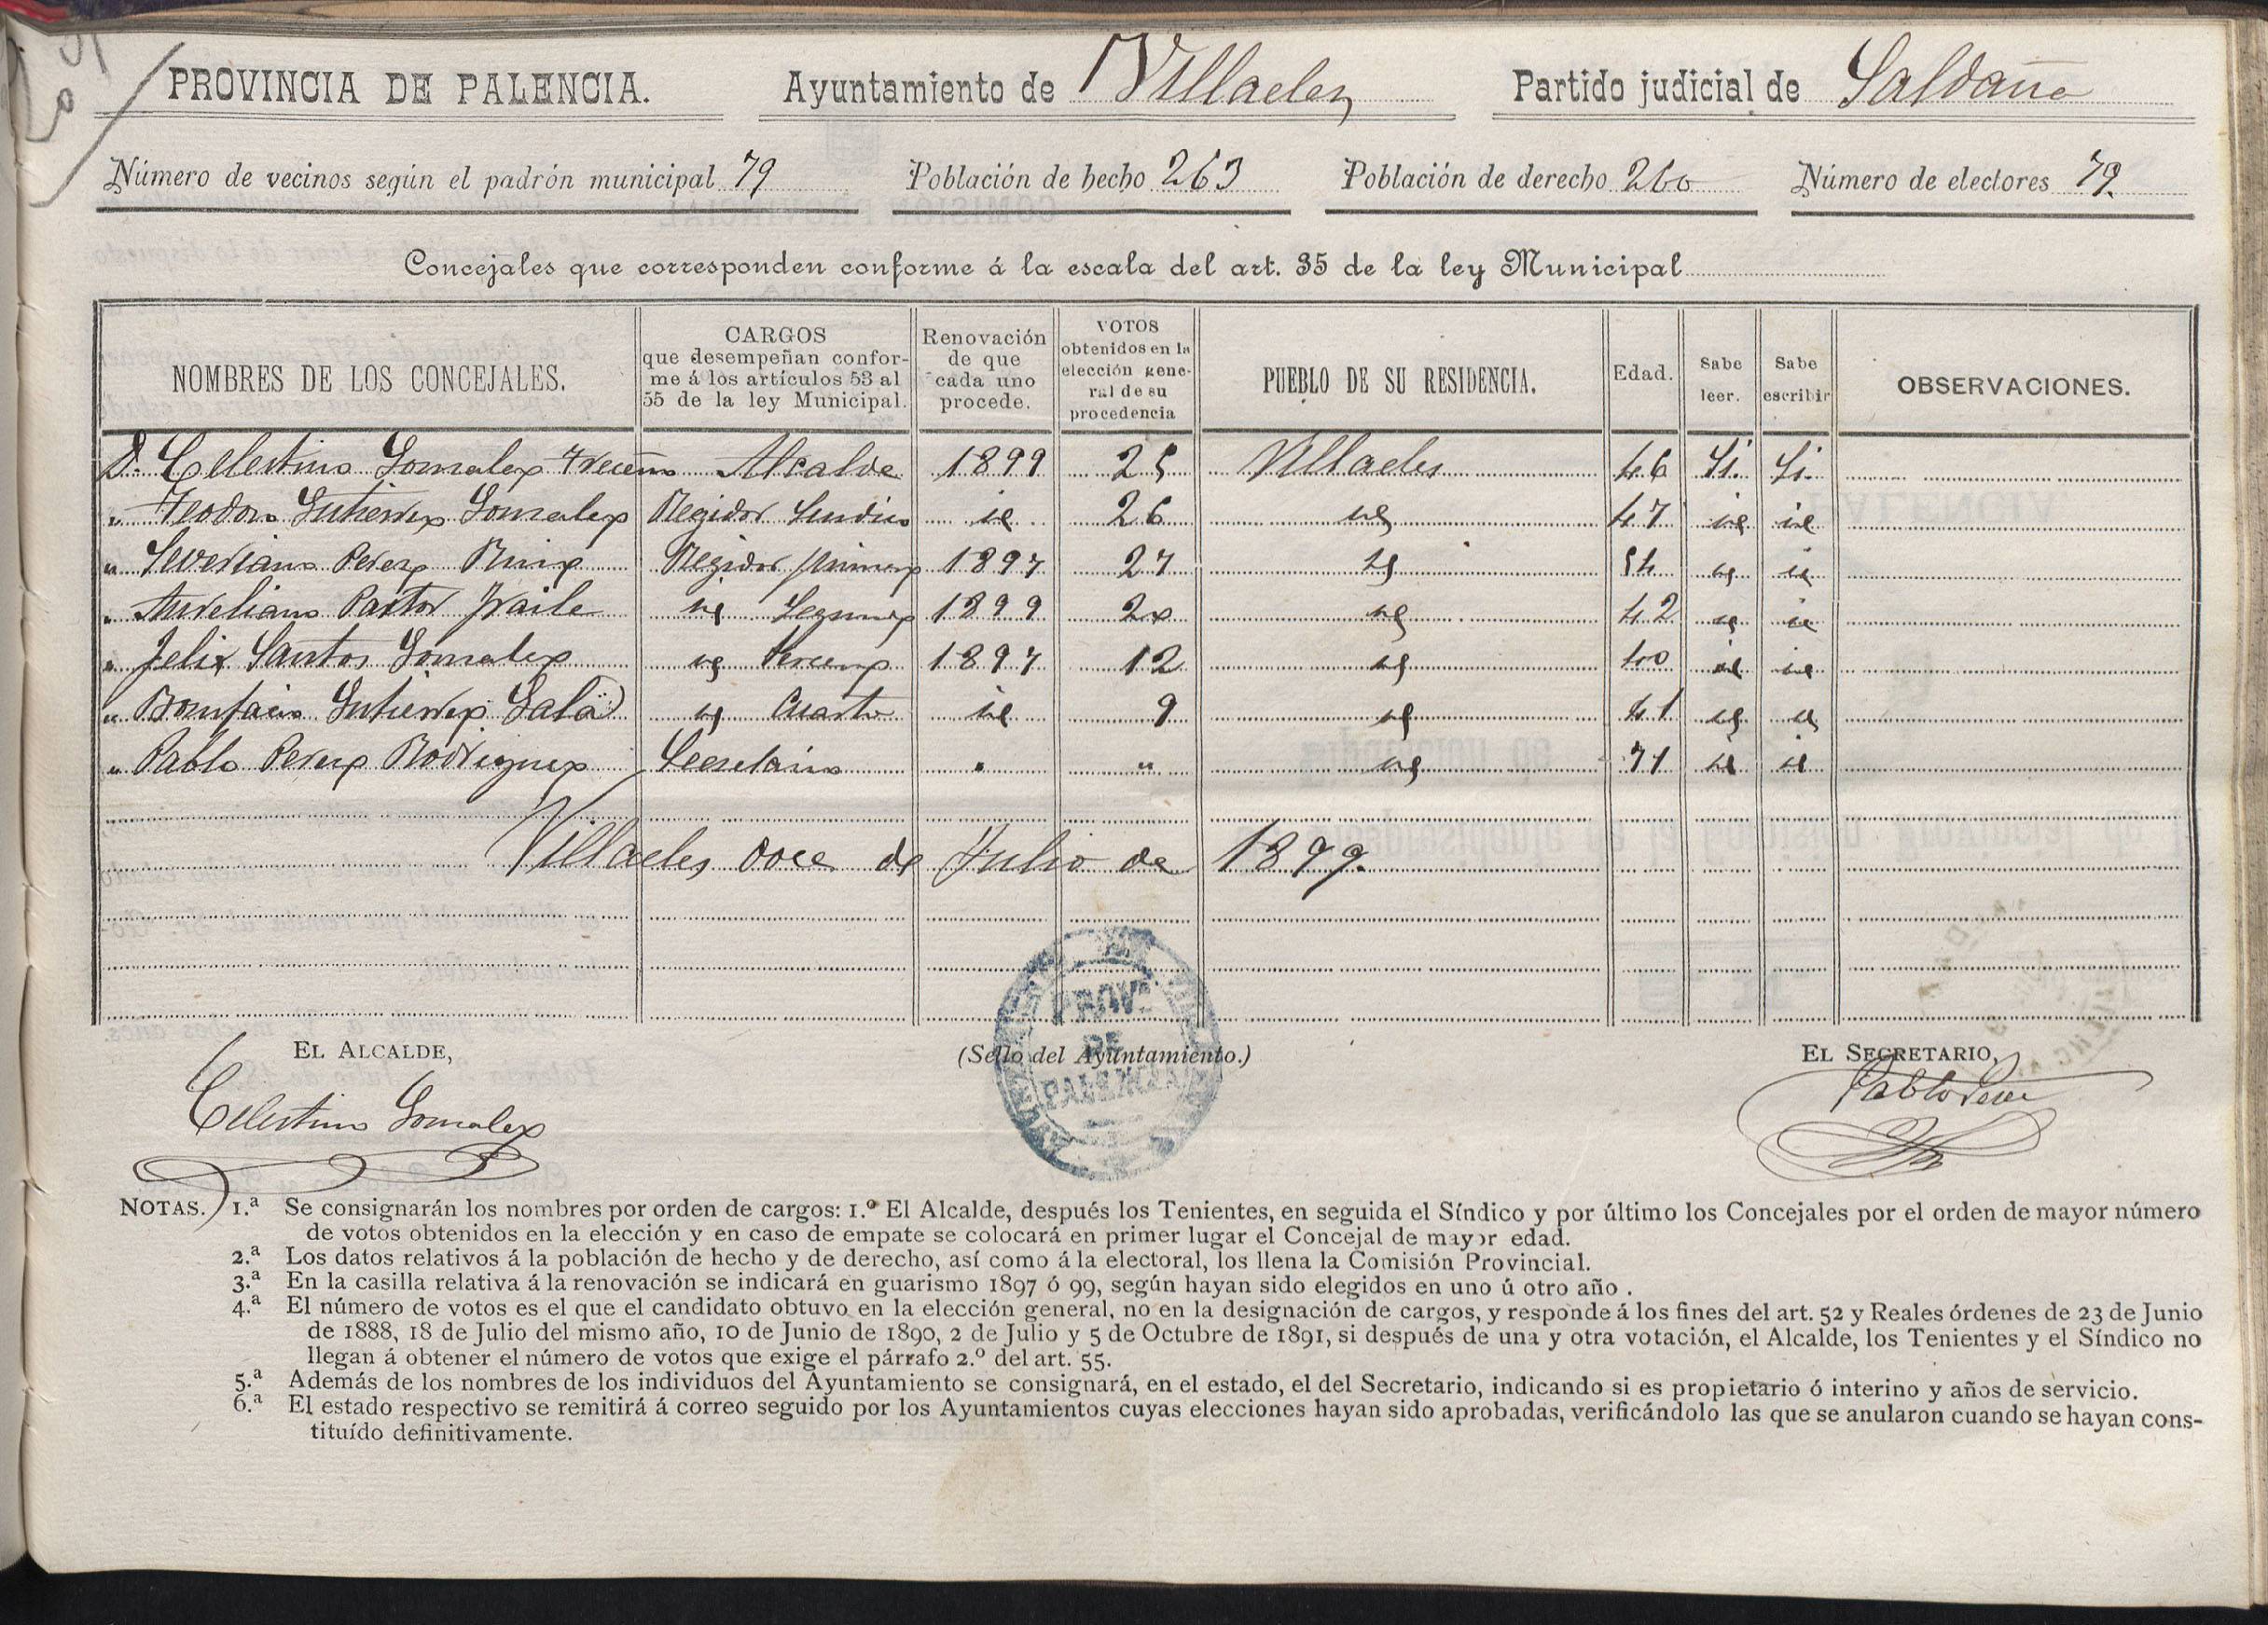 PROVINCIA DE PALENCIA. Ayuntamiento de Villaeles Partido judicial de Saldaña
Número de vecinos según el padrón municipal 79 Población de hecho 263 Población de derecho 260 Número de electores 79.
Concejales que corresponden conforme á la escala del art. 35 de la ley Municipal
NOMBRES DE LOS CONCEJALES. CARGOS que desempeñan conforme á los artículos 53 al 55 de la ley Municipal. Renovación de que cada uno procede. VOTOS obtenidos en la elección general de su procedencia PUEBLO DE SU RESIDENCIA. Edad. Sabe leer. Sabe escribir OBSERVACIONES.
D. Celestino Gonzalez Treceño Alcalde 1899 25 Villaeles 46 Si. Si.
" Teodoro Gutierrez Gonzalez Regidor Sindico id. 26 id 47 id id
" Severiano Perez Ruiz Regidor primero 1897 27 id 54 id id
" Aureliano Pastor Fraile id Segundo 1899 20 id 42 id id
" Felix Santos Gonzalez id Tercero 1897 12 id 40 id id
" Bonifacio Gutierrez Sala id Cuarto id 9 id 41 id id
" Pablo Perez Rodriguez Secretario " " id 71 id id
Villaeles doce de Julio de 1899.
EL ALCALDE, (Sello del Ayuntamiento.) EL SECRETARIO,
PROVª
DE
PALENCIA
Celestino Gonzalez Pablo Perez
NOTAS. 1.ª Se consignarán los nombres por orden de cargos: 1.º El Alcalde, después los Tenientes, en seguida el Síndico y por último los Concejales por el orden de mayor número
de votos obtenidos en la elección y en caso de empate se colocará en primer lugar el Concejal de mayor edad.
2.ª Los datos relativos á la población de hecho y de derecho, así como á la electoral, los llena la Comisión Provincial.
3.ª En la casilla relativa á la renovación se indicará en guarismo 1897 ó 99, según hayan sido elegidos en uno ú otro año .
4.ª El número de votos es el que el candidato obtuvo en la elección general, no en la designación de cargos, y responde á los fines del art. 52 y Reales órdenes de 23 de Junio
de 1888, 18 de Julio del mismo año, 10 de Junio de 1890, 2 de Julio y 5 de Octubre de 1891, si después de una y otra votación, el Alcalde, los Tenientes y el Síndico no
llegan á obtener el número de votos que exige el párrafo 2.º del art. 55.
5.ª Además de los nombres de los individuos del Ayuntamiento se consignará, en el estado, el del Secretario, indicando si es propietario ó interino y años de servicio.
6.ª El estado respectivo se remitirá á correo seguido por los Ayuntamientos cuyas elecciones hayan sido aprobadas, verificándolo las que se anularon cuando se hayan cons-
tituído definitivamente.